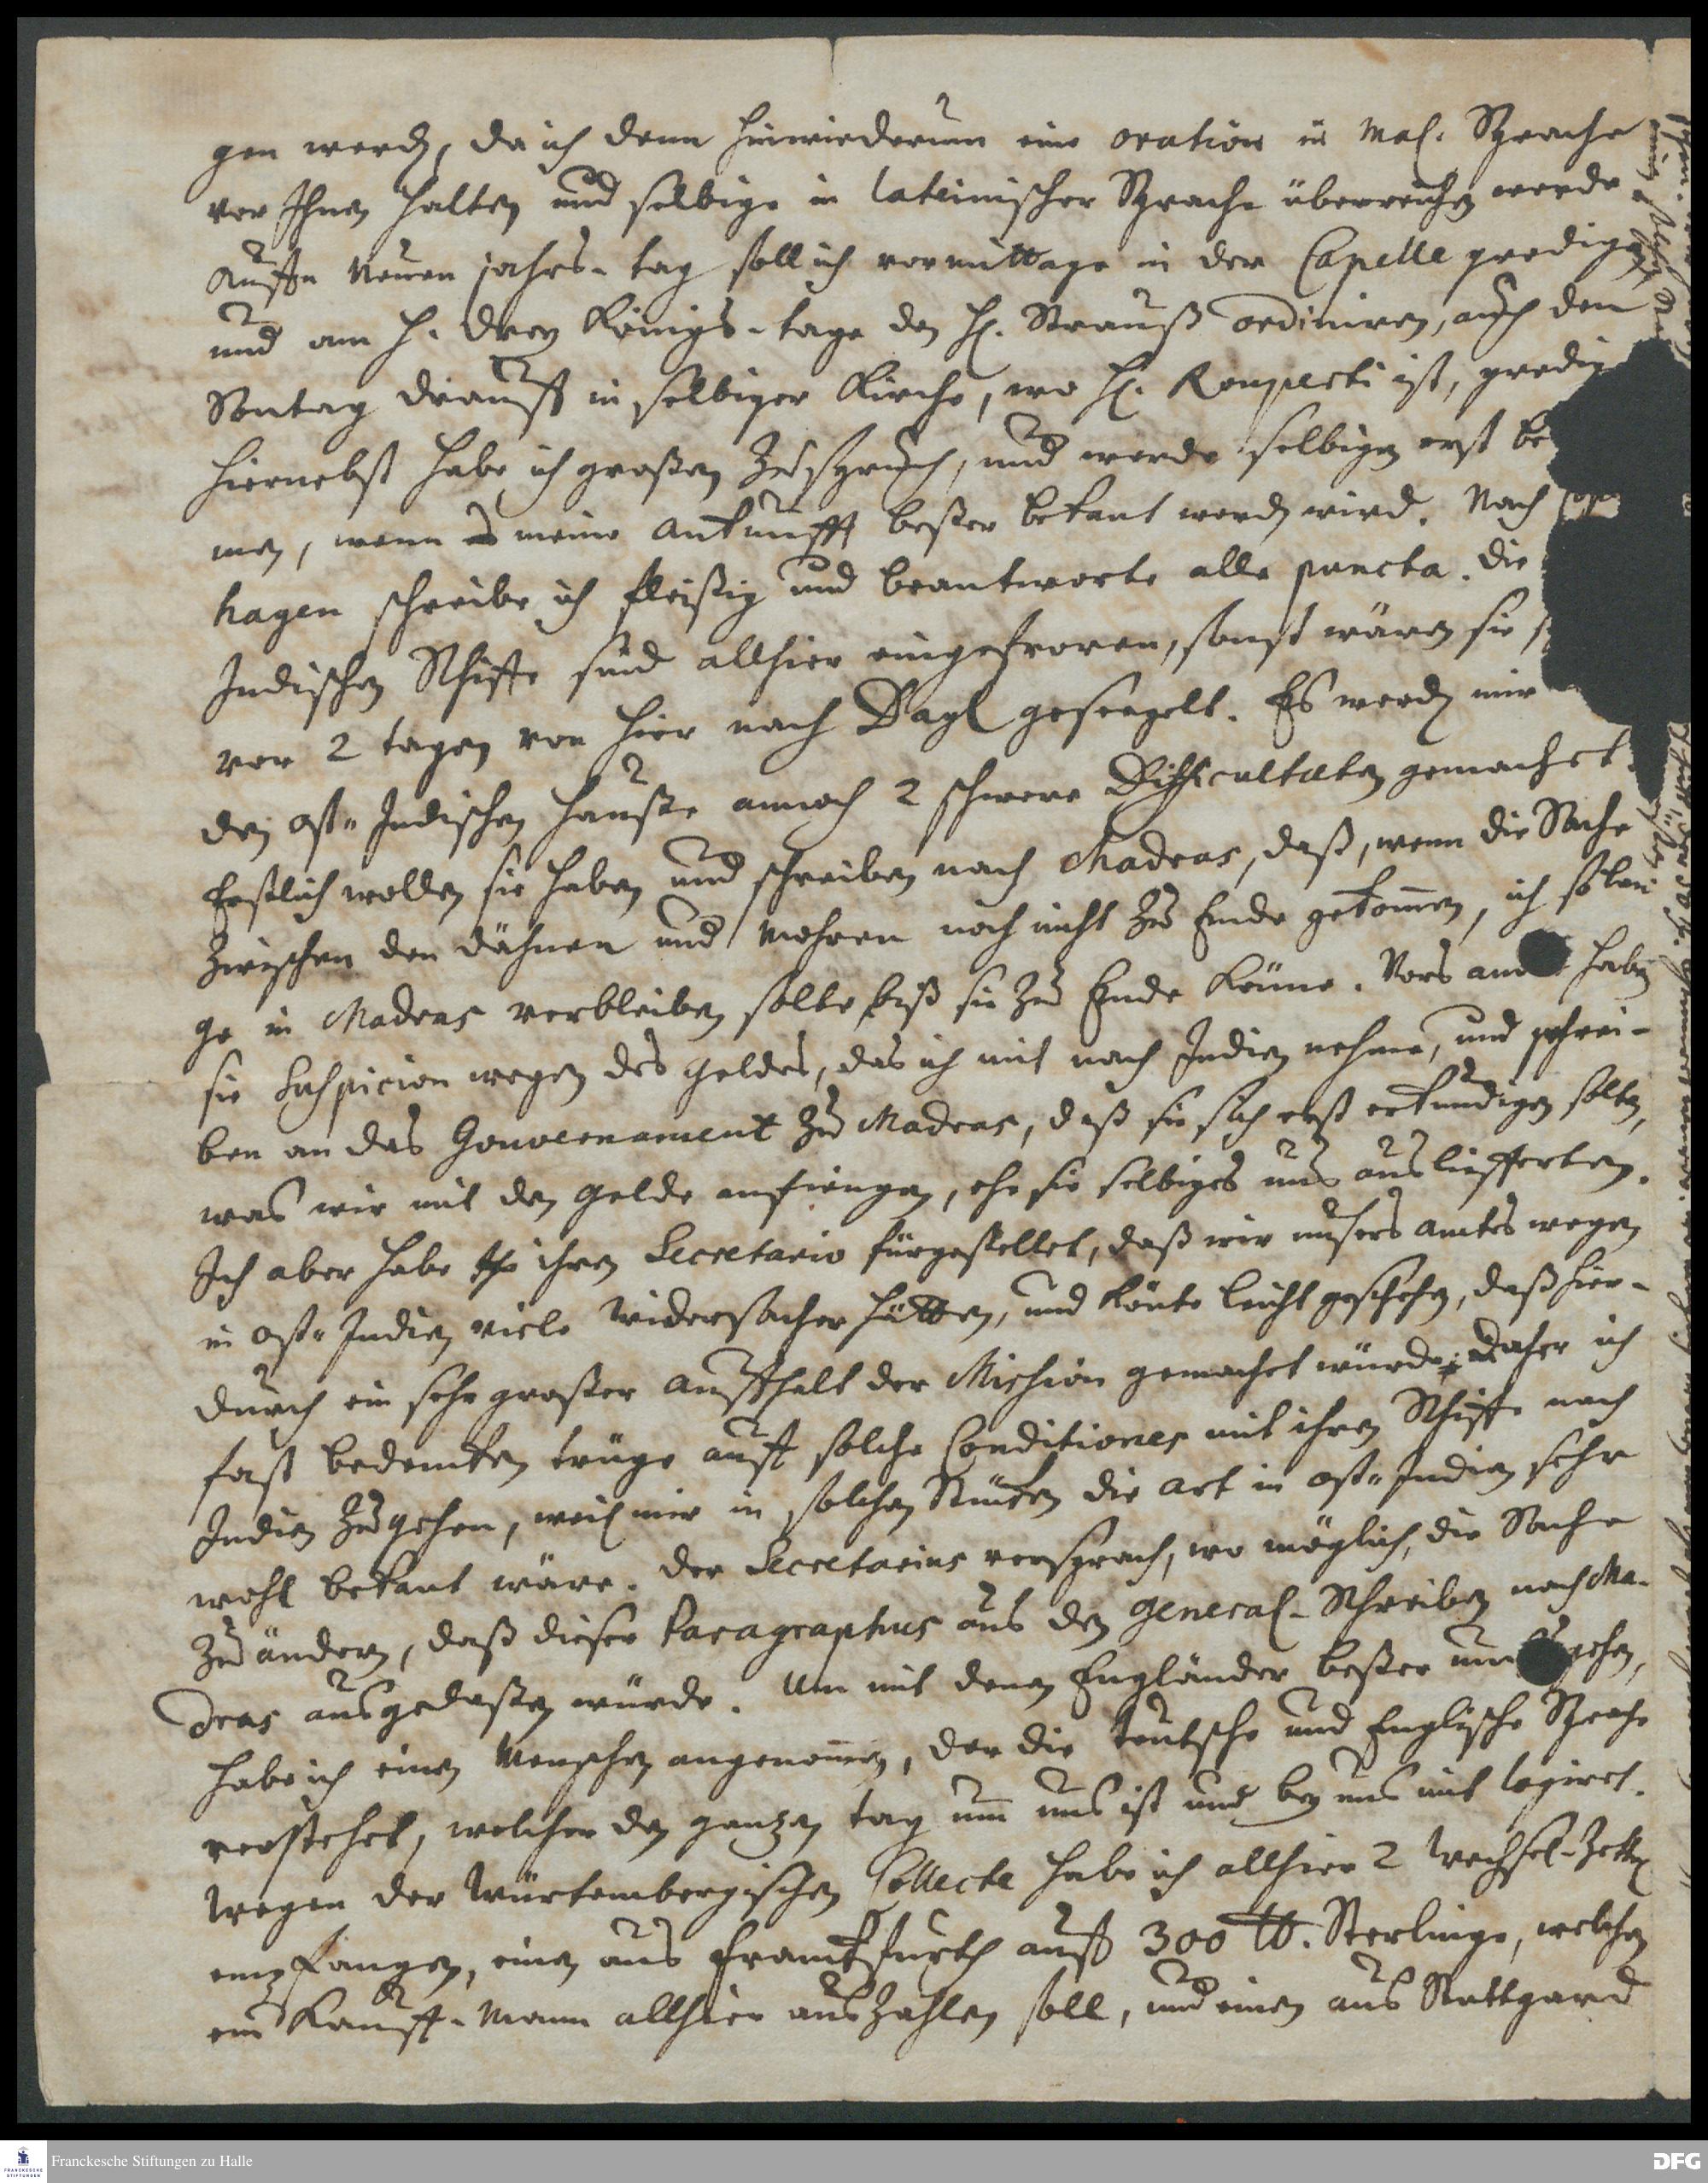 gen werden, da ich denn hinwiederum eine oration in Mal. Sprache
vor Ihnen halten und selbige in lateinischer Sprache überreichen werde.
Auffn Neuen jahrs-tag soll ich vormittage in der Capelle predigen
und am H. Drey Königs-tage den H. Strauß ordiniren, auch den
Sontag drauff in selbiger Kirche, wo H. Ruperti ist, predig
hiernebst habe ich großen Zuspruch, und werde selbigen erst be
men, wenn meine Ankunfft beßer bekant werden wird. Nach
hagen schreibe ich fleißig und beantworte alle puncta. Die
Indischen Schiffe sind allhier eingefroren, sonst wären sie
vor 2 tagen von hier nach gesegelt. Es werden mir
den Ost-Indischen Hauße annoch 2 schwere Difficultæten gemachet.
Erstlich wollen sie haben und schreiben nach Madras, daß, wenn die Sache
zwischen den Dähnen und Mohren noch nicht zu Ende gekommen, ich so lan
ge in Madras verbleiben solte biß sie zu Ende käme. Vors and haben
sie Suspicion wegen des Geldes, das ich mit nach Indien nehme, und schrei-
ben an das Gouvernament zu Madras, daß sie sich erst erkundigen solten,
was wir mit den Gelde anfiengen, ehe sie selbiges uns auslieferten.
Ich aber habe ihren Secretario fürgestellet, daß wir unsers Amtes wegen
in Ost-Indien viele Widersacher hätten, und könte leicht geschehen, daß hier-
durch ein sehr großer Auffhalt der Mission gemachet würde; Daher ich
fast bedencken trüge auff solche Conditiones mit ihren Schiffe nach
Indien zu gehen, weil mir in solchen Stücken die Art in Ost-Indien sehr
wohl bekant wäre. Der Secretarius versprach, wo möglich, die Sache
zu ändern, daß dieser Paragraphus aus den General-Schreiben nach Ma-
dras ausgelaßen würde. Um mit denen Engländer beßer um gehen,
habe ich einen Menschen angenommen, der die Teutsche und Englische Sprache
verstehet, welcher den gantzen tag um uns ist und bey uns mit logiret.
Wegen der Würtembergischen Collecte habe ich allhier 2 Wechsel-Zettel
empfangen, einen aus Franckfurth auff 300 ℔. Sterlinge, welchen
ein Kauff-Mann allhier auszahlen soll, und einen aus Stuttgard
Franckesche Stiftungen zu Halle
DFG